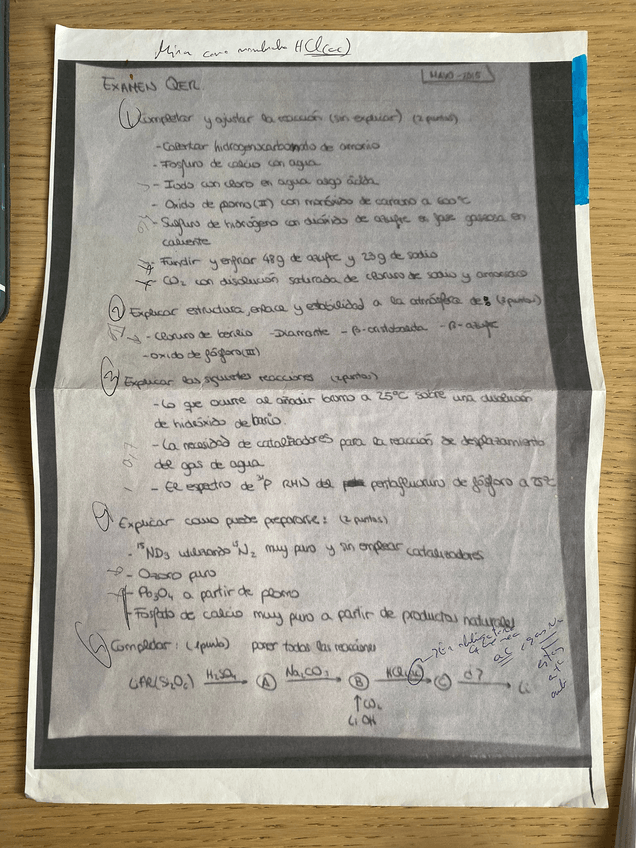 Mira como nombrada HCl(ac)
EXAMEN QER.
MAYO-2015
1) Completar y ajustar la reacción (sin explicar) (2 puntos)
- Calentar hidrogenocarbonato de amonio
- Fosfuro de calcio con agua
- Iodo con cloro en agua algo ácida
- Oxido de plomo (II) con monóxido de carbono a 600°C
- Sulfuro de hidrógeno con dióxido de azufre en fase gaseosa en
caliente
- Fundir y enfriar 48g de azufre y 23g de sodio
- CO2 con disolución saturada de cloruro de sodio y amoniaco
2) Explicar estructura, enlace y estabilidad a la atmósfera de: (3 puntos)
- Cloruro de berilio - Diamante - β-cristobalita - β-azufre
- Oxido de fósforo (III)
3) Explicar las siguientes reacciones (2 puntos)
- Lo que ocurre al añadir bromo a 25°C sobre una disolución
de hidróxido de bario.
- La necesidad de catalizadores para la reacción de desplazamiento
del gas de agua
0,7
- El espectro de 31P RMN del pentafluoruro de fósforo a 25°C
4) Explicar como puede prepararse: (2 puntos)
- 15ND3 utilizando 15N2 muy puro y sin emplear catalizadores
- Ozono puro
- Pb3O4 a partir de plomo
- Fosfato de calcio muy puro a partir de productos naturales
5) Completar: (1 punto) poner todas las reacciones
LiAl(Si2O6) H2SO4 → A Na2CO3 → B HCl(ac) → C d? → Li
↑ CO2
LiOH